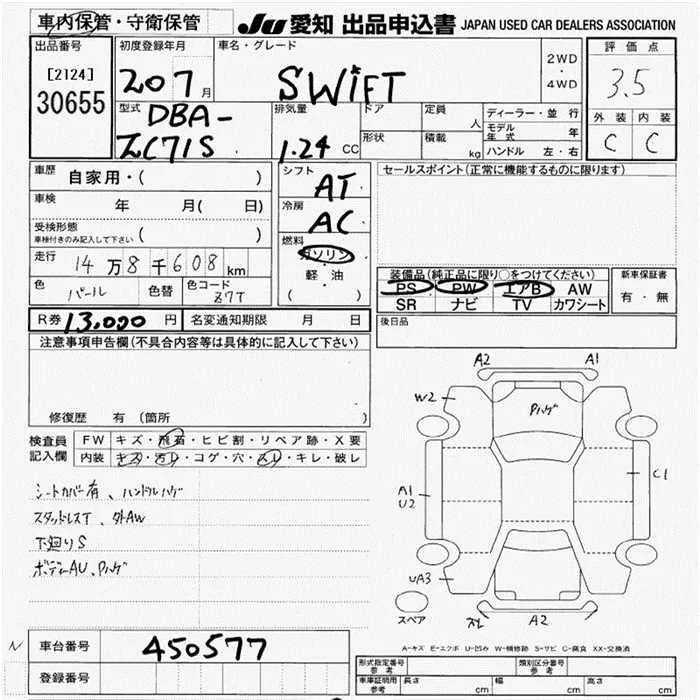 車内保管・守衛保管
JU 愛知 出品申込書 JAPAN USED CAR DEALERS ASSOCIATION
出品番号
[2124]
30655
初度登録年月
20 7 月
車名・グレード
SWIFT
2WD
・
4WD
評価点
3.5
外装 内装
C C
型式
DBA-
ZC71S
排気量
1.24 CC
ドア
形状
定員
人
積載
kg
ディーラー・並行
モデル年式 年
ハンドル 左・右
車歴 自家用・( )
車検 年 月( 日)
受検形態
車検付きのみ記入して下さい ( )
走行 14万8千608km
色 パール 色替 色コード Z7T
R券 13,000 円 名変通知期限 月 日
シフト
AT
冷房
AC
燃料
ガソリン
軽・油
( )
セールスポイント(正常に機能するものに限ります)
装備品(純正品に限り○をつけてください)
PS PW エアB AW
SR ナビ TV カワシート
新車保証書
有・無
後日品
注意事項申告欄(不具合内容等は具体的に記入して下さい)
修復歴 有(箇所 )
検査員記入欄
FW キズ・飛石・ヒビ割・リペア跡・X要
内装 キズ・汚レ・コゲ・穴・スレ・キレ・破レ
シートカバー有、ハンドルハゲ
スタッドレスT、外AW
下廻りS
ボディーAU、Pハゲ
A2 A1
W2
Pハゲ
A1
U2
C1
UA3
スレ A2
スペア
A-キズ E-エクボ U-凹み W-補修跡 S-サビ C-腐食 XX-交換済
N
車台番号 450577
登録番号
形式指定番号 参考
類別区分番号 参考
車庫証明用 参考 長さ cm 幅 cm 高さ cm